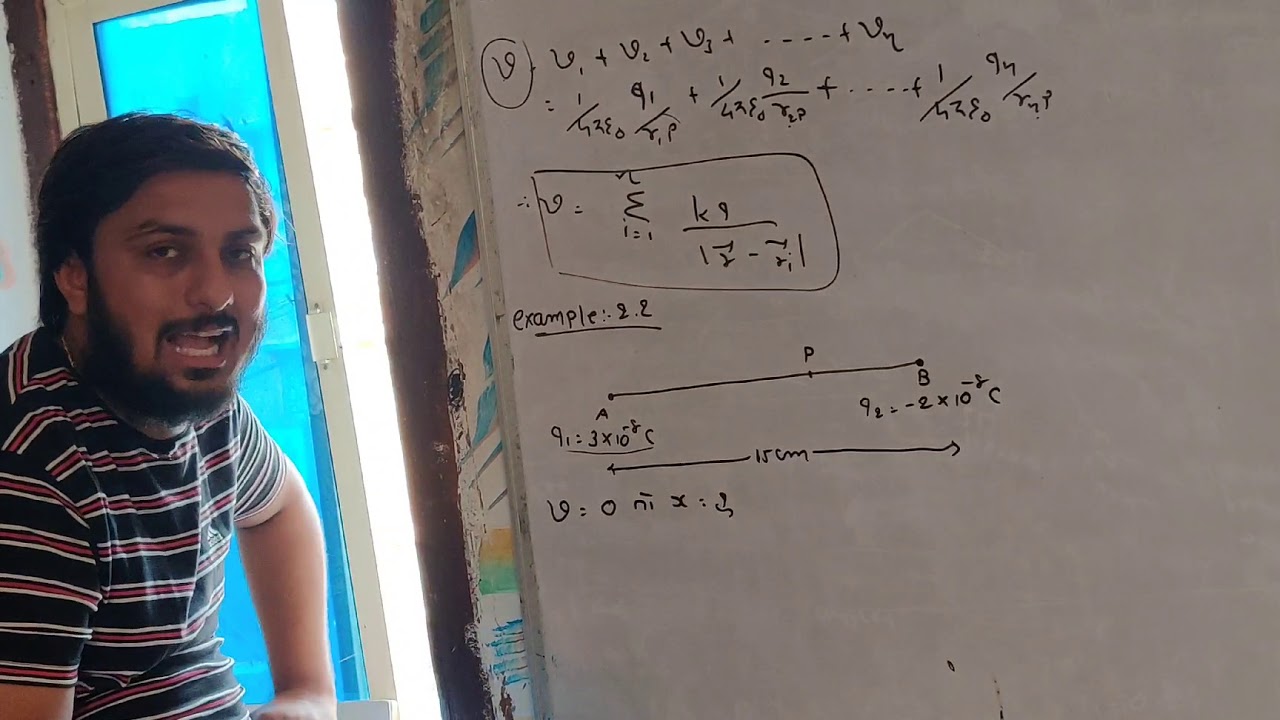 V = V₁ + V₂ + V₃ + ----- + Vₙ
= 1/4πε₀ q₁/r₁p + 1/4πε₀ q₂/r₂p + ----- + 1/4πε₀ qₙ/rₙp
∴ V = Σᵢ₌₁ⁿ kq / |r⃗ - r⃗ᵢ|
example:- 2.2
P
A B
q₁ = 3×10⁻⁸ C q₂ = -2×10⁻⁸ C
15cm
V = 0 ni x = ?